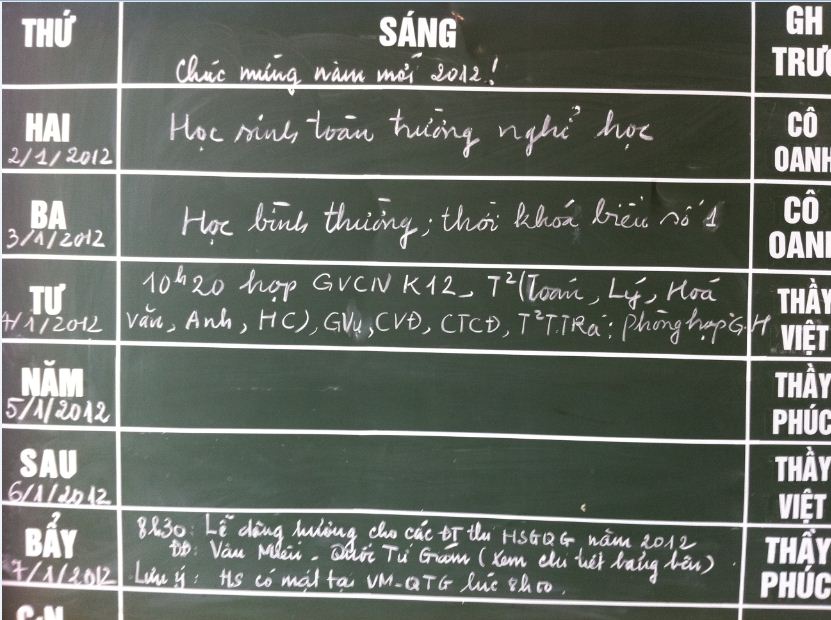 THỨ SÁNG GH
TRƯ
Chúc mừng năm mới 2012!
HAI Học sinh toàn trường nghỉ học CÔ
2/1/2012 OANH
BA Học bình thường; thời khoá biểu số 1 CÔ
3/1/2012 OANH
TƯ 10h20 họp GVCN K12, T²(Toán, Lý, Hoá THẦY
4/1/2012 Văn, Anh, HC), GVụ, CVĐ, CTCĐ, T²TTRa: Phòng họp G.H VIỆT
NĂM THẦY
5/1/2012 PHÚC
SAU THẦY
6/1/2012 VIỆT
BẨY 8h30: Lễ dâng hương cho các ĐT thi HSGQG năm 2012 THẦY
ĐĐ: Văn Miếu - Quốc Tử Giám (Xem chi tiết bảng bên)
7/1/2012 Lưu ý: HS có mặt tại VM-QTG lúc 8h00. PHÚC
C.N